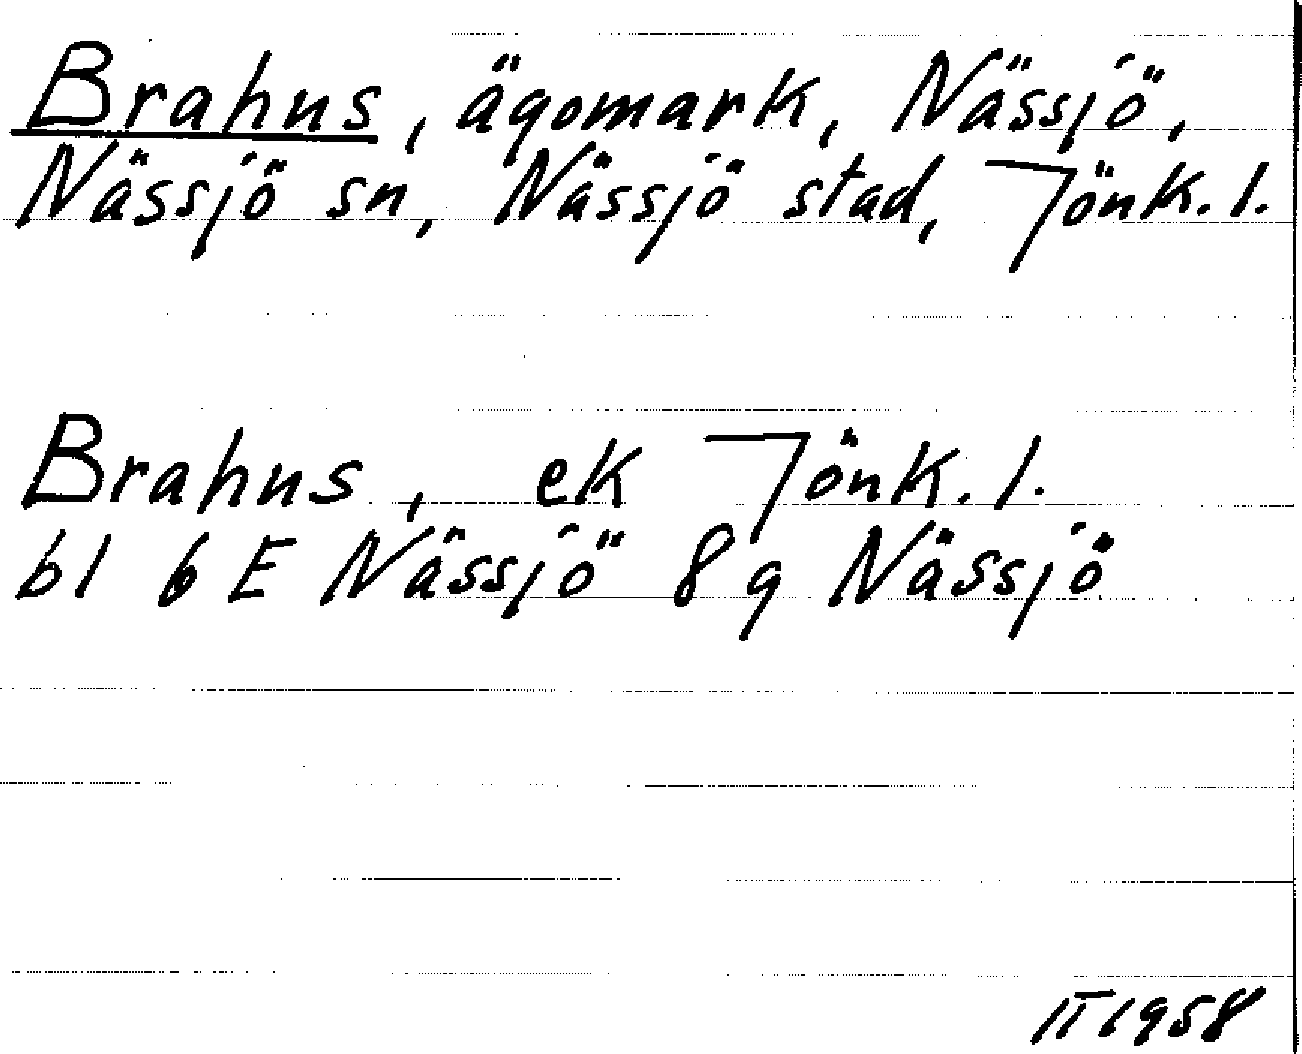 Brahus, ägomark, Nässjö,
Nässjö sn, Nässjö stad, Jönk. l.
Brahus, ek Jönk. l.
bl 6 E Nässjö 8 g Nässjö
II 1958